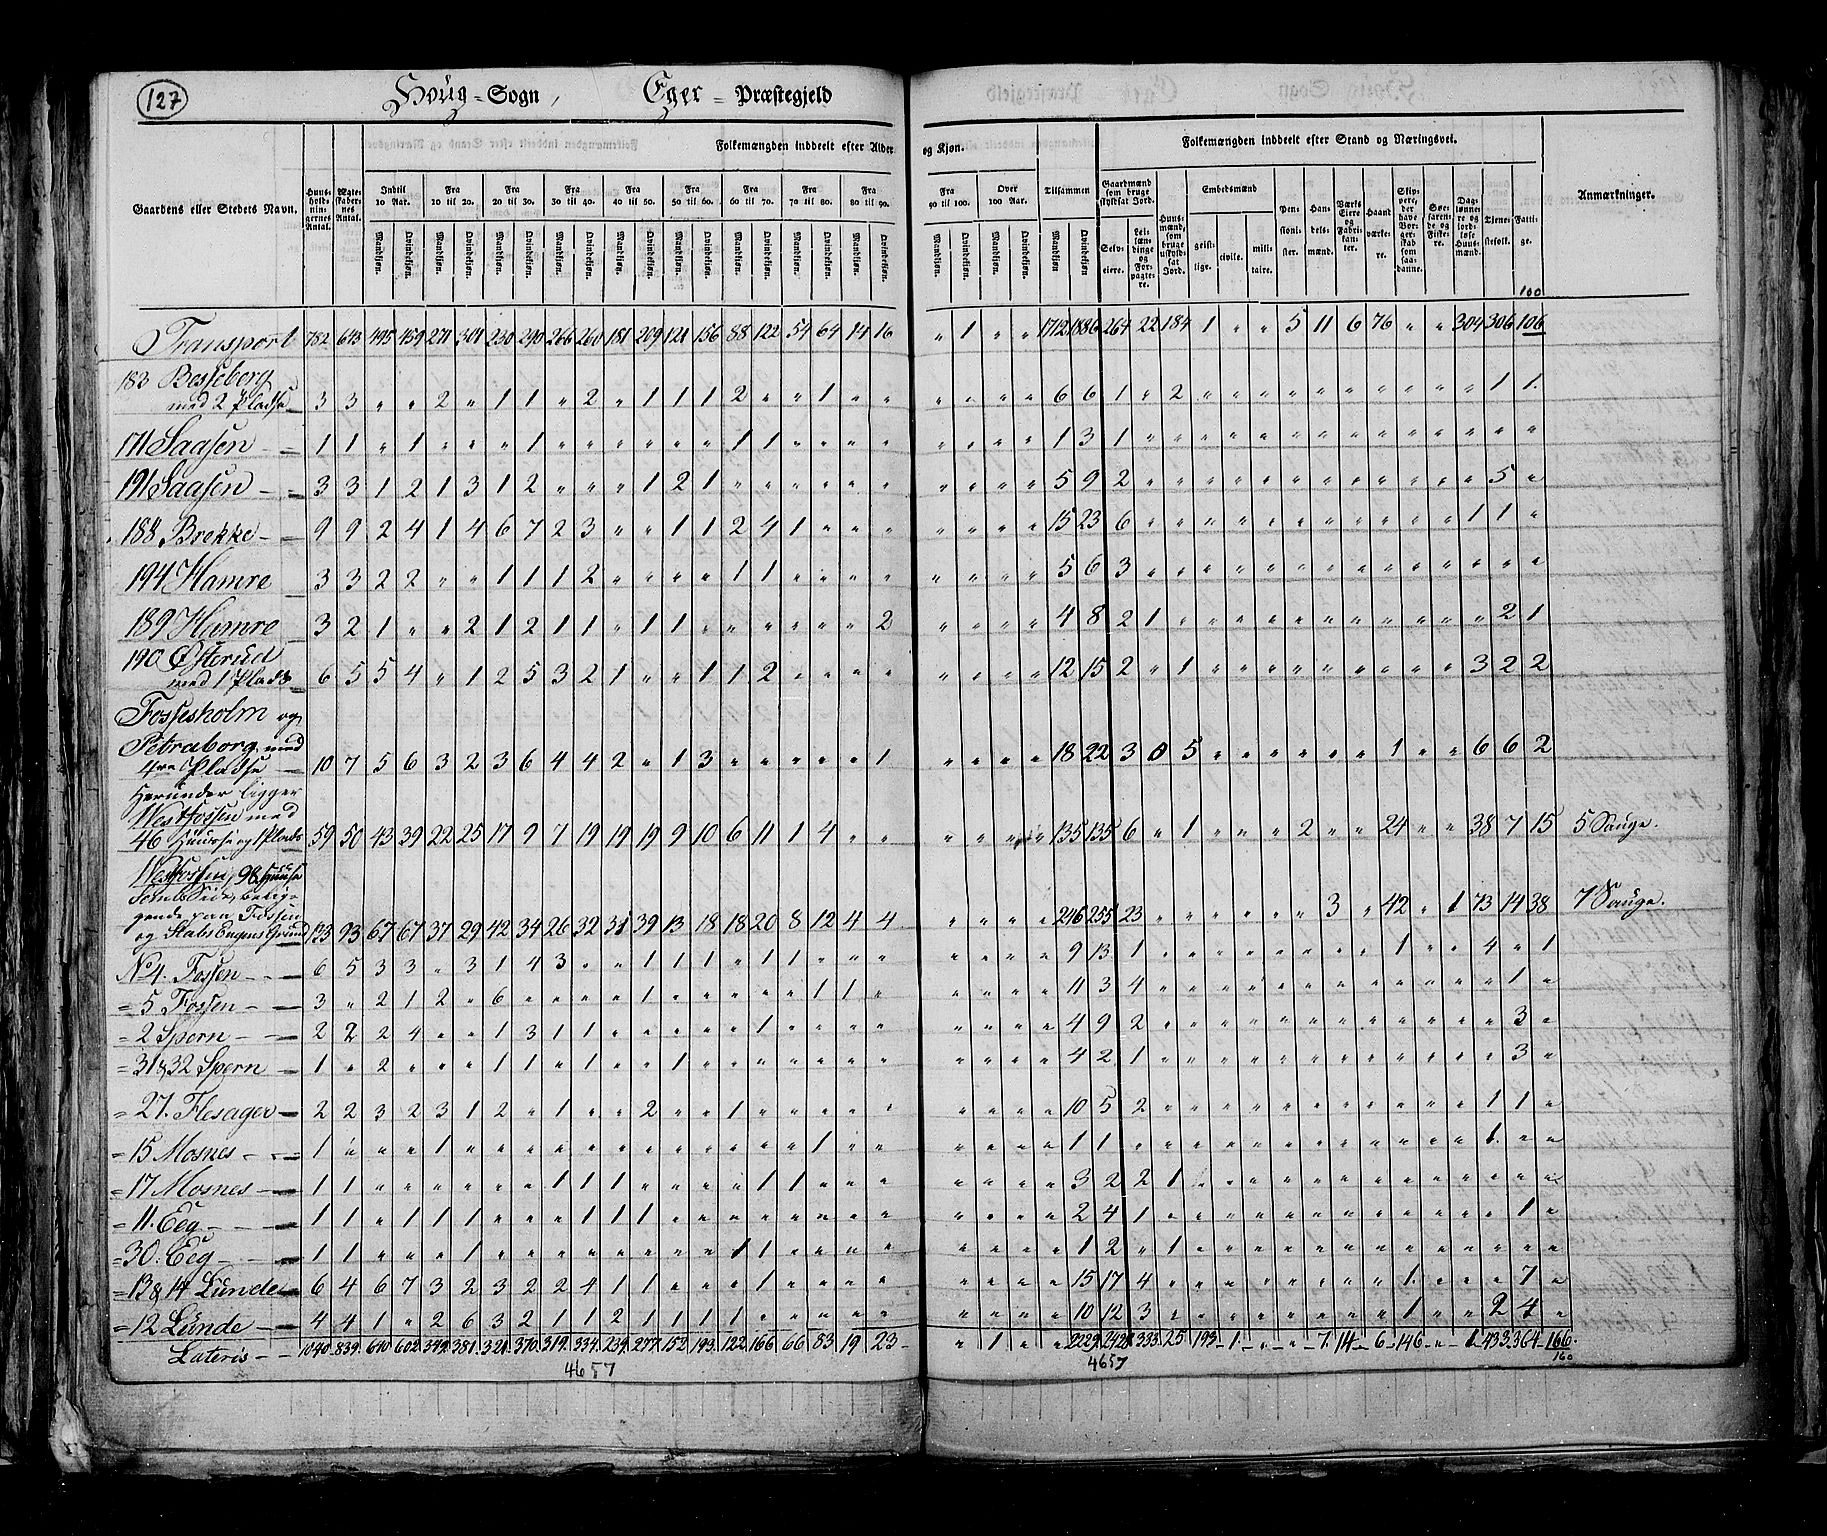 127
Houg = Sogn, Eger = Præstegjeld
Folkemængden inddeelt efter Alder og Kjøn.
Folkemængden inddeelt efter Stand og Næringsvei.
Gaardens eller Stedets Navn.
Huusholdningernes Antal.
Ægteskabernes Antal.
Indtil 10 Aar. Fra 10 til 20. Fra 20 til 30. Fra 30 til 40. Fra 40 til 50. Fra 50 til 60. Fra 60 til 70. Fra 70 til 80. Fra 80 til 90. Fra 90 til 100. Over 100 Aar. Tilsammen
Mandkjøn. Qvindekjøn.
Gaardmænd som bruge skyldsat Jord.
Selveiere. Leilændinge og Forpagtere.
Huusmænd, som bruge uskyldsat Jord.
Embedsmænd
geistlige. civile. militaire.
Pensionister. Handelsmænd. Værks Eiere og Fabrikanter. Haandværkere.
Skippere, der have Borgerskab som saadanne.
Søefarende og Fiskere.
Dagslønnere og jordløse Huusmænd.
Tjenestefolk. Fattige.
Anmærkninger.
100
Transport 782 643 495 459 271 301 230 290 266 260 181 209 121 156 88 122 54 64 14 16 " 1 " " 1712 1886 264 22 184 1 " " 5 11 6 76 " " 304 306 106
183 Besseberg
med 2 Pladse 3 3 " " 2 " 1 1 " 2 " 1 1 1 2 " " 1 " " " " " " 6 6 1 " 2 " " " " " " " " " " 1 1
171 Saasen 1 1 " 1 " " " 1 " " " " " " 1 1 " " " " " " " " 1 3 1 " " " " " " " " " " " " " "
191 Saasen 3 3 1 2 1 3 1 2 " " " 1 2 1 " " " " " " " " " " 5 9 2 " " " " " " " " " " " " 5 "
188 Brekke 9 9 2 4 1 4 6 7 2 3 " " 1 1 2 4 1 " " " " " " " 15 23 6 " " " " " " " " " " " 1 1 "
194 Hamre 3 3 2 2 " " 1 1 1 2 " " " " 1 1 " " " " " " " " 5 6 3 " " " " " " " " " " " " " "
189 Hamre 3 2 1 " " 2 1 2 1 1 " 1 1 " " " " " " 2 " " " " 4 8 2 1 " " " " " " " " " " " 2 1
190 Østerud
med 1 Plads 6 5 5 4 " 1 2 5 3 2 1 " " 1 1 2 " " " " " " " " 12 15 2 " 1 " " " " " " " " " 3 2 2
Fossesholm og
Petraborg med
4re Pladse 10 7 5 6 3 2 3 6 4 4 2 " 1 3 " " " " " 1 " " " " 18 22 3 0 5 " " " " " " 1 " " 6 6 2
Herunder ligger
Westfossen med
46 Huusse og 1 Plads 59 50 43 39 22 25 17 9 7 19 19 19 9 10 6 11 1 4 " " " " " " 135 135 6 " 1 " " " 2 " " 24 " " 38 7 15 5 Sauge.
Westfossen, 98 Huuse
gende paa Fossen
og Stabs Engens Grund 133 93 67 67 37 29 42 34 26 32 31 39 13 18 18 20 8 12 4 4 " " " " 246 255 23 " " " " " " 3 " 42 " 1 73 14 38 7 Sauge.
No 4. Fossen 6 5 3 3 " 3 1 4 3 " " 1 1 1 " 1 1 " " " " " " " 9 13 1 " " " " " " " " 1 " " 4 " 1
= 5 Fossen 3 " 2 1 2 " 6 " " " " 1 " " " " 1 1 " " " " " " 11 3 4 " " " " " " " " " " " " 1 "
= 2 Spern 2 2 2 4 " " 1 3 1 1 " " " " " 1 " " " " " " " " 4 9 2 " " " " " " " " " " " " 3 "
= 31 & 32 Spern 1 " 2 " " " 1 1 " 1 " " 1 " " " " " " " " " " " 4 2 1 " " " " " " " " " " " " 3 "
= 27. Flesager 2 2 3 2 3 1 2 " 1 " " 2 " " 1 " " " " " " " " " 10 5 2 " " " " " " " " " " " 1 1 "
= 15 Mosnes 1 " " " 1 " " " " " " " " " " " " 1 " " " " " " 1 1 " " " " " " " " " " " " 1 " "
= 17 Mosnes 1 1 " " " " " " 1 1 1 " " " " 1 1 " " " " " " " 3 2 2 1 " " " " " " " " " " " " "
= 11. Eeg 1 1 " 1 1 1 " " " 1 1 1 " " " " " " " " " " " " 2 4 1 " " " " " " " " " " " " 1 "
= 30. Eeg 1 1 " " " 1 " " " " " " " " 1 1 " " " " " " " " 1 2 " 1 " " " " " " " " " " " " "
= 13 & 14 Lunde 6 4 6 7 3 2 3 2 2 4 1 1 " " " 1 " " " " " " " " 15 17 4 " " " " " " " " 1 " " " 7 "
= 12 Lunde 4 4 1 " 2 6 3 2 1 1 2 1 1 1 1 " " " " " " " " " 10 12 3 " " " " " " " " 1 " " 2 4 "
Lateris 1040 839 640 602 349 381 321 370 319 334 239 277 152 193 122 166 66 83 19 23 " 1 " " 2229 2428 333 25 193 1 " " 7 14 6 146 " 1 433 364 166
160
4657
4657